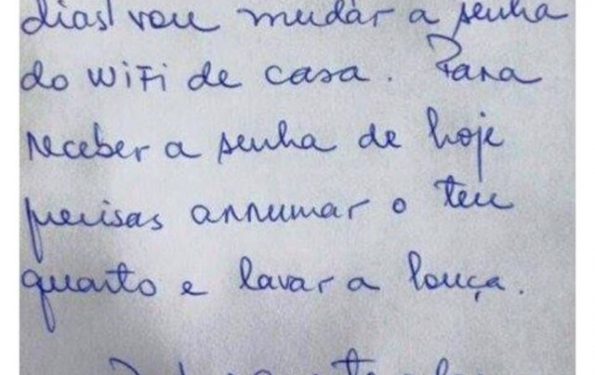 dias) vou mudar a senha
do WiFi de casa. Para
receber a senha de hoje
precisas arrumar o teu
quarto e lavar a louça.